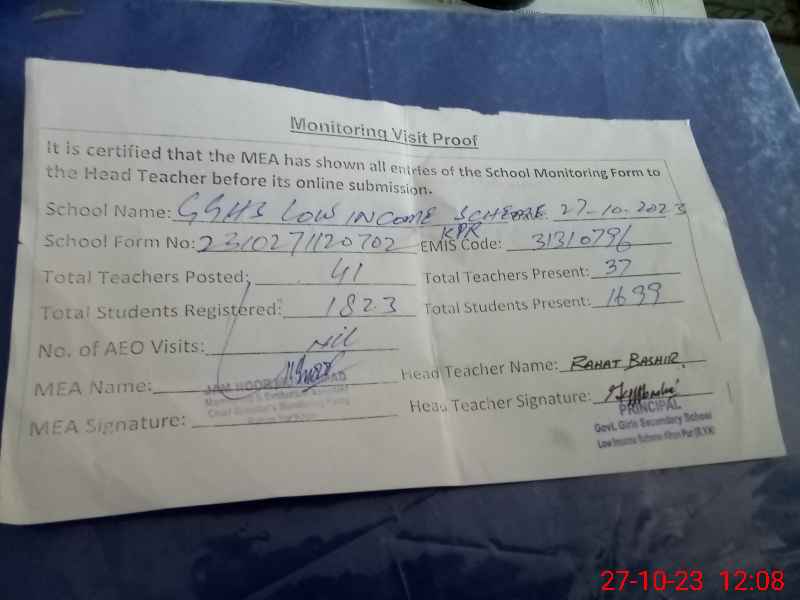 Monitoring Visit Proof
It is certified that the MEA has shown all entries of the School Monitoring Form to
the Head Teacher before its online submission.
School Name: GGHS LOW INCOME SCHEME 27-10-2023
KPR
School Form No: 2310271120702 EMIS Code: 31310796
Total Teachers Posted: 41 Total Teachers Present: 37
Total Students Registered: 1823 Total Students Present: 1699
No. of AEO Visits: Nil
MEA Name: JAM Head Teacher Name: RAHAT BASHIR
MEA Signature: Head Teacher Signature:
PRINCIPAL
Govt. Girls Secondary School
Low Income Scheme Khan Pur (R.Y.K)
27-10-23 12:08